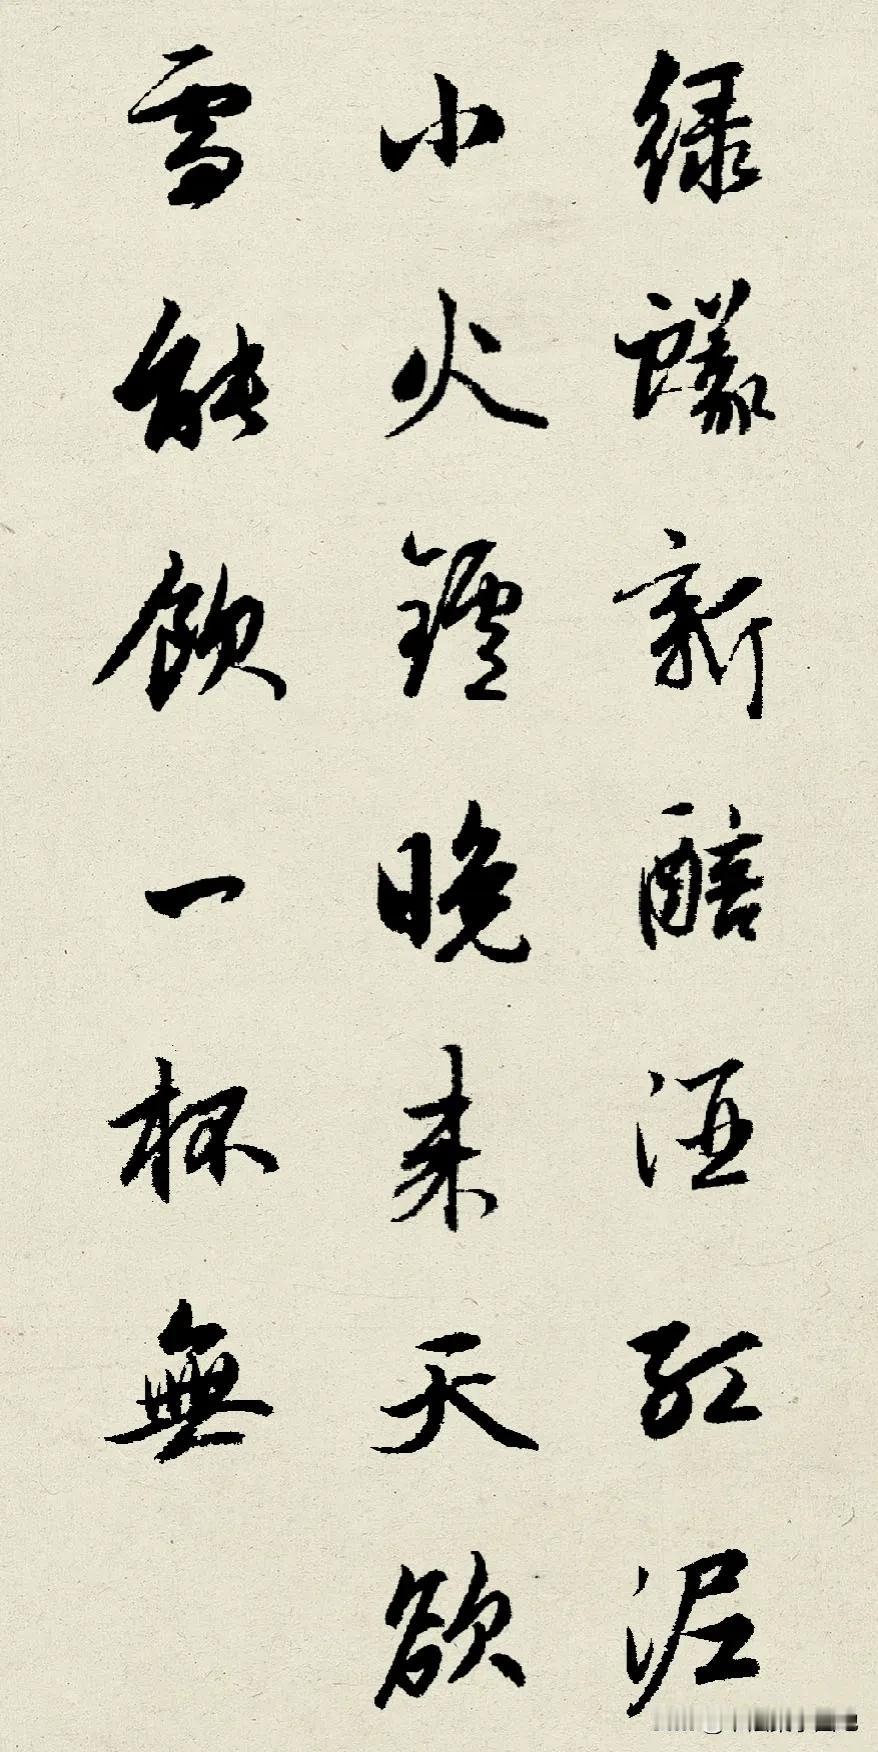 绿蟻新醅酒红泥
小火鑪晚来天欲
雪能飲一杯無